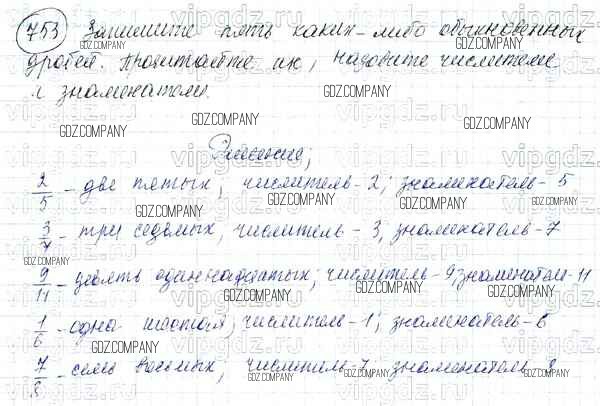 753 Запишите пять каких-либо обыкновенных
дробей. Прочитайте их, назовите числители
и знаменатели.
Решение;
2/5 - две пятых; числитель - 2; знаменатель - 5
3/7 - три седьмых, числитель - 3, знаменатель - 7
9/11 - девять одиннадцатых; числитель - 9; знаменатель - 11
1/6 - одна шестая; числитель - 1; знаменатель - 6
7/8 - семь восьмых, числитель 7, знаменатель 8